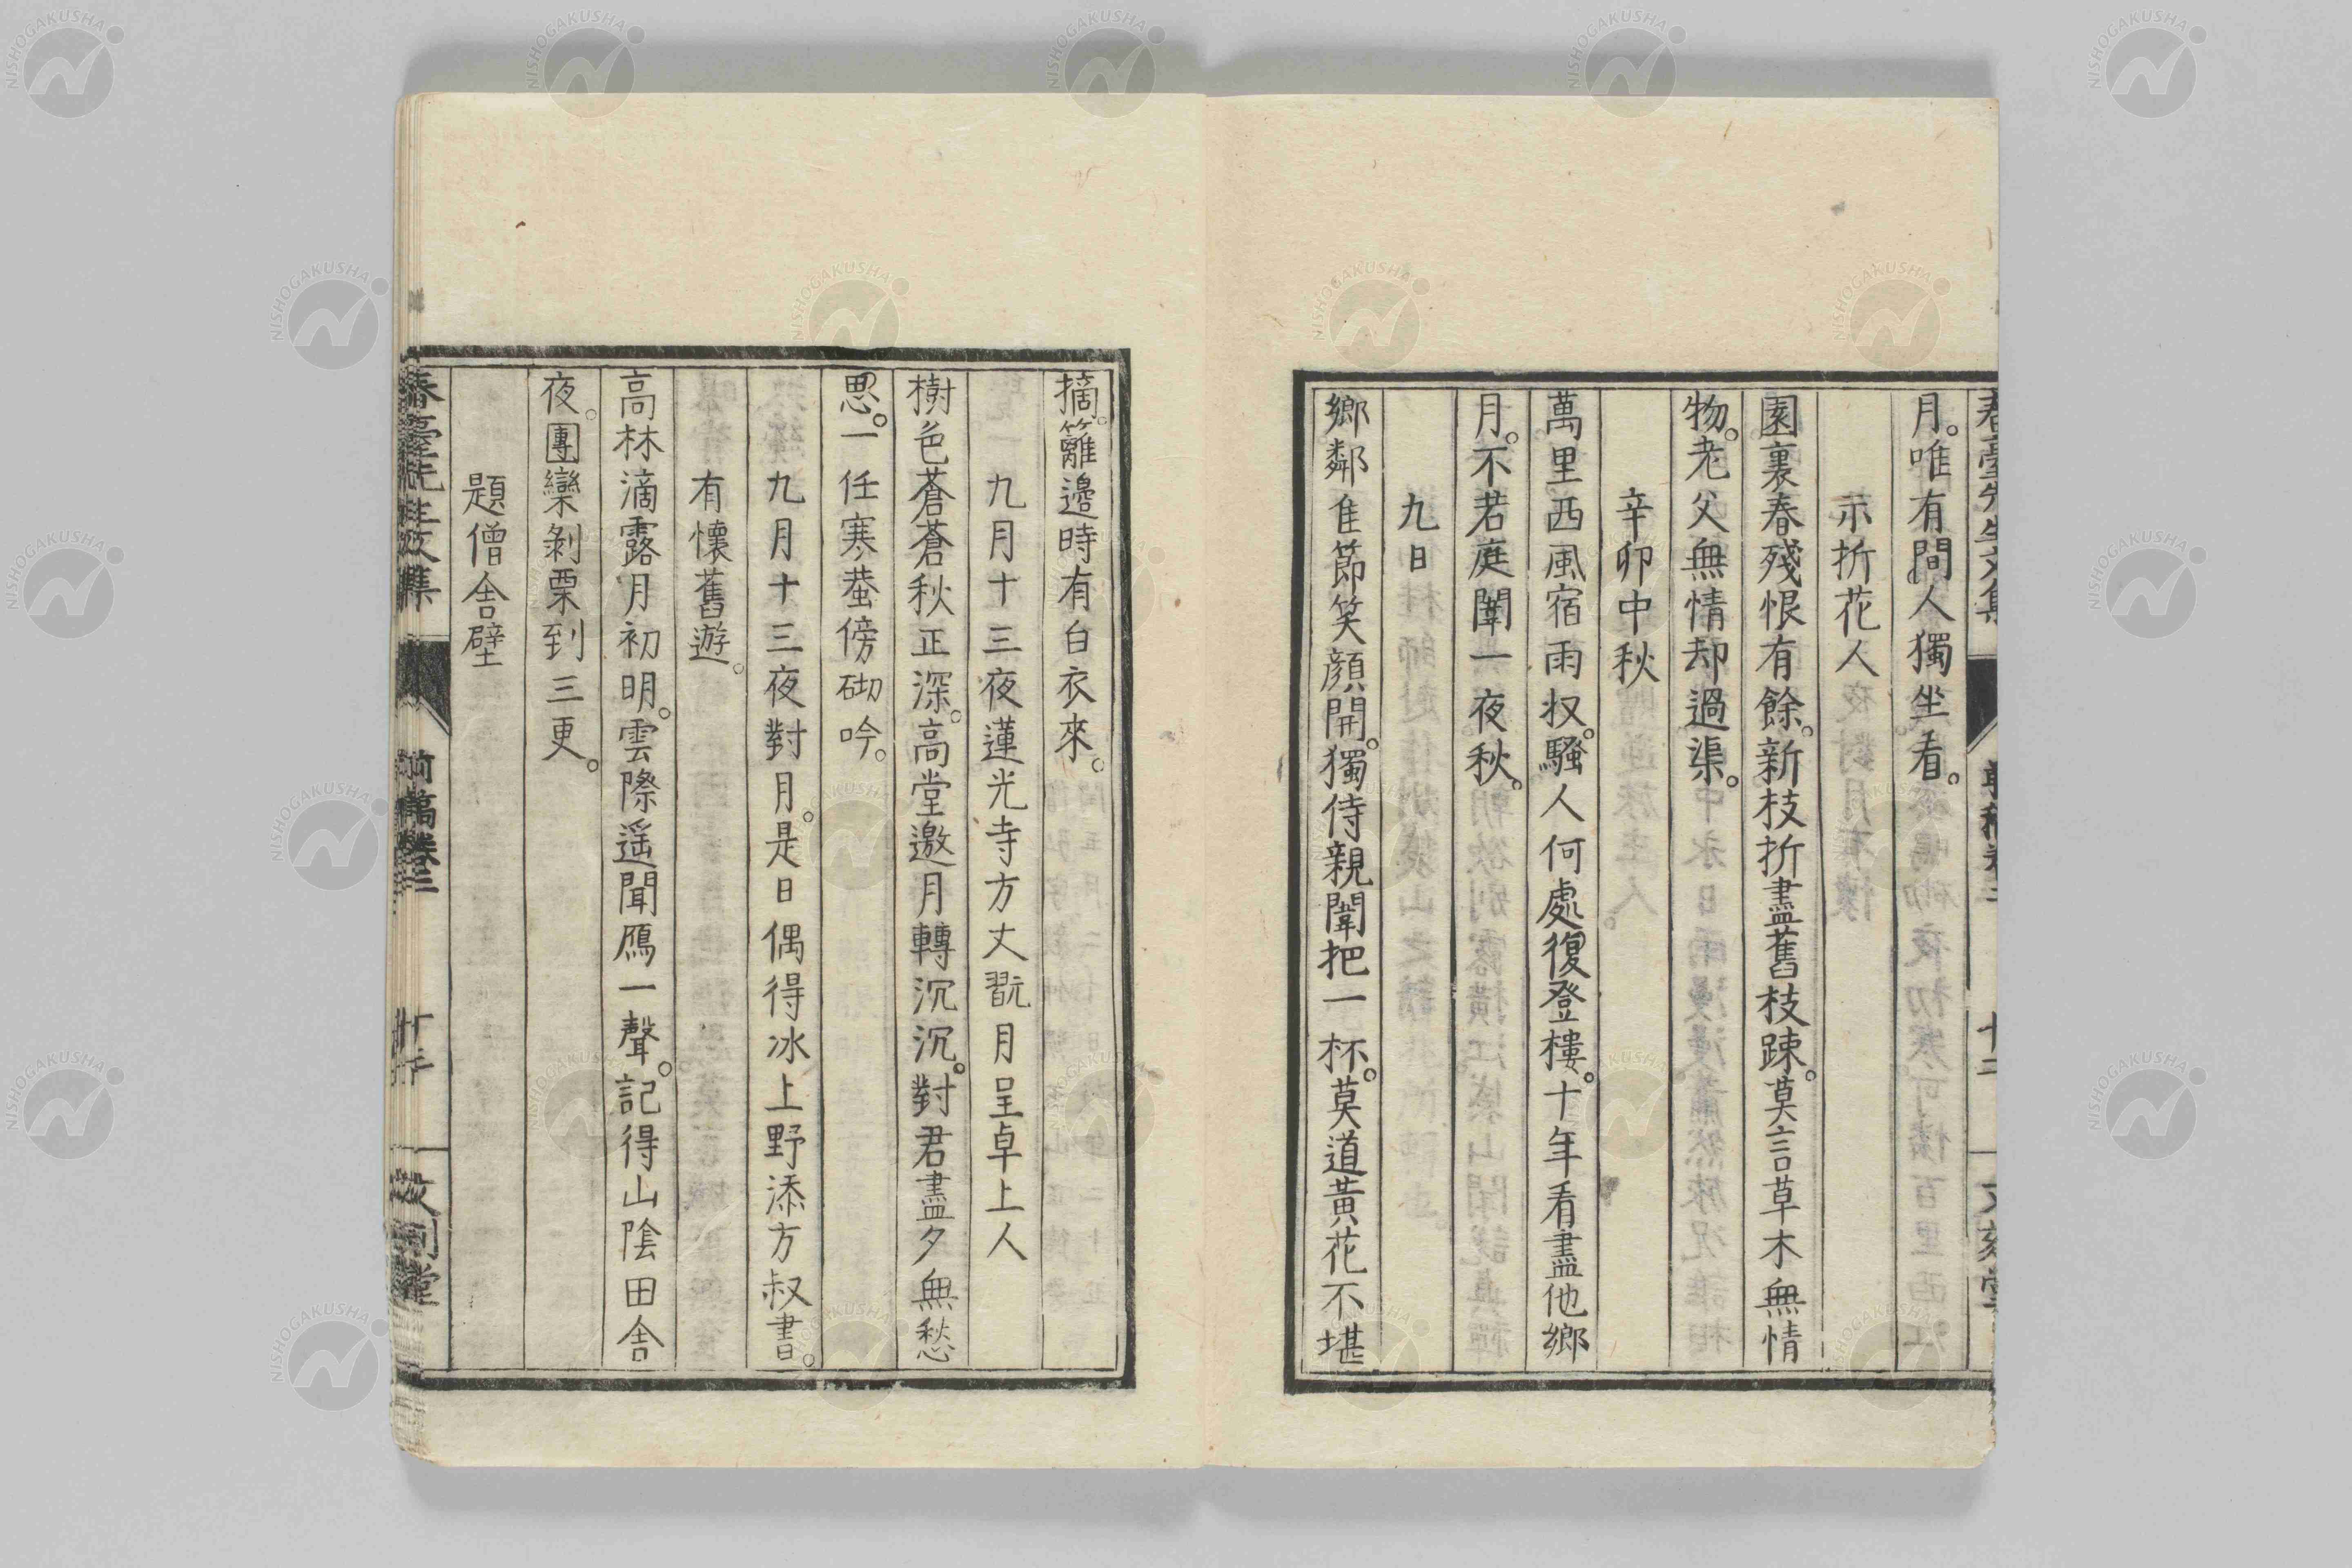 月。唯有間人獨坐看。
示折花人
園裏春殘恨有餘。新枝折盡舊枝踈。莫言草木無情
物。老父無情却過渠。
辛卯中秋
萬里西風宿雨収。騷人何處復登樓。十年看盡他鄉
月。不若庭闈一夜秋。
九日
鄉鄰佳節笑顔開。獨侍親闈把一杯。莫道黃花不堪
摘。籬邊時有白衣來。
九月十三夜蓮光寺方丈翫月呈卓上人
樹色蒼蒼秋正深。高堂邀月轉沉沉。對君盡夕無愁
思。一任寒蛩傍砌吟。
九月十三夜對月。是日偶得冰上野添方叔書。
有懷舊遊。
高林滴露月初明。雲際遥聞鴈一聲。記得山陰田舍
夜。團欒剝栗到三更。
題僧舍壁
春臺先生文集 前稿卷三
NISHOGAKUSHA